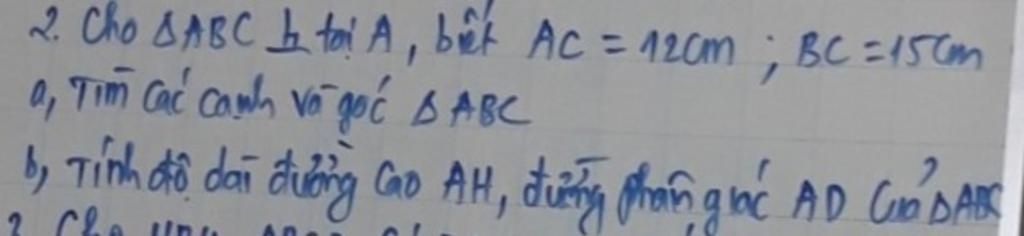 2. Cho ΔABC ⊥ tại A, biết AC = 12cm ; BC = 15cm
a, Tìm các cạnh và góc ΔABC
b, Tính độ dài đường cao AH, đường phân giác AD của ΔABC
2. Cho